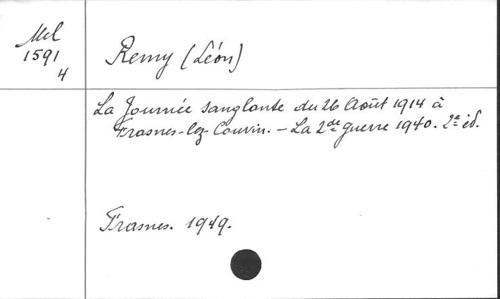 Mél
1591
4
Remy (Léon)
La Journée sanglante du 26 Août 1914 à
Frasnes-lez-Couvin. - La 2de guerre 1940. 2e éd.
Frasnes. 1949.